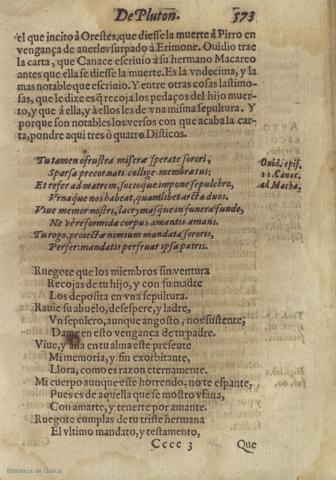 De Pluton. 573
el que incito à Orestes, que diesse la muerte à Pirro en
vengança de auerle vsurpado à Erimone. Ouidio trae
la carta, que Canace escriuio à su hermano Macareo
antes que ella se diesse la muerte. Es la vndecima, y la
mas notable que escriuio. Y entre otras cosas lastimo-
sas, que le dize es q̃ recoja los pedaços del hijo muer-
to, y que à ella, y à ellos les de vna misma sepultura. Y
porque son notables los versos con que acaba la car-
ta, pondre aqui tres ò quatro Disticos.
Tu tamen ò frustra miseræ sperate sorori,
Sparsa precor nati collige membra tui:
Et refer ad matrem, socioque impone sepulchro,
Vrnaque nos habeat, quamlibet arcta duos.
Viue memor nostri, lacrymasque in funera funde,
Ne ve reformida corpus amantis amans.
Tu rogo, proiectæ nimium mandata sororis,
Perfer: mandatis perfruar ipsa patris.
Ouid. epis.
11. Canac.
ad Macha.
Ruegote que los miembros sin ventura
Recojas de tu hijo, y con su madre
Los deposita en vna sepultura.
Rauie su abuelo, desespere, y ladre,
Vn sepulcro, aunque angosto, nos sustente;
Dame en esto vengança de tu padre.
Viue, y alla en tu alma este presente
Mi memoria, y sin exorbitante,
Llora, como es razon eternamente.
Mi cuerpo aunque este horrendo, no te espante,
Pues es de aquella que se mostro vfana,
Con amarte, y tenerte por amante.
Ruegote cumplas de tu triste hermana
El vltimo mandato, y testamento,
Cccc 3 Que
Biblioteca de Galicia